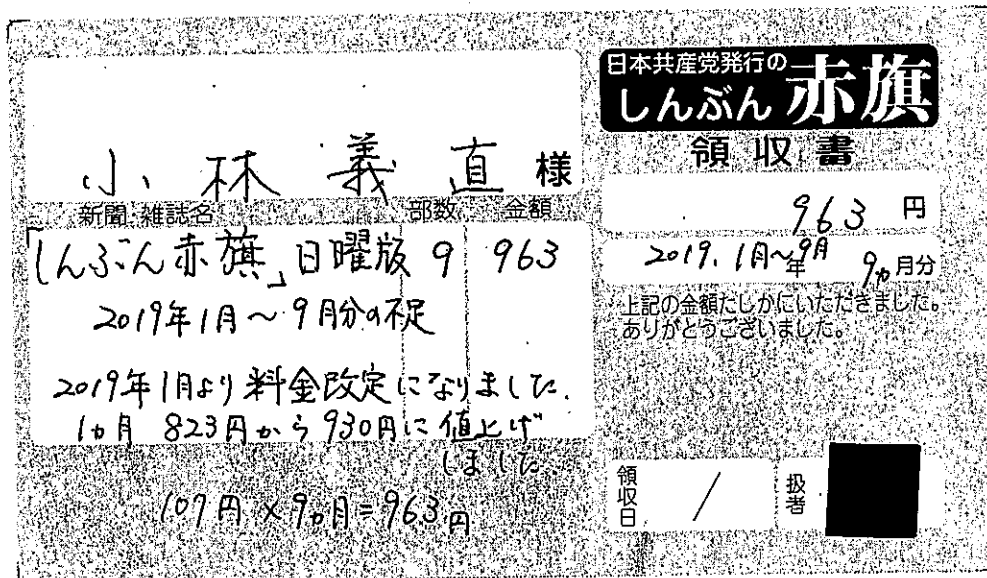 小林義直 様
新聞・雑誌名 部数 金額
「しんぶん赤旗」日曜版 9 963
2019年1月〜9月分の不足
2019年1月より料金改定になりました.
1カ月 823円から930円に値上げ
しました.
107円×9カ月=963円
日本共産党発行の
しんぶん赤旗
領収書
963 円
2019.1月〜9月 年 9カ月分
上記の金額たしかにいただきました。
ありがとうございました。
領収日 /
扱者